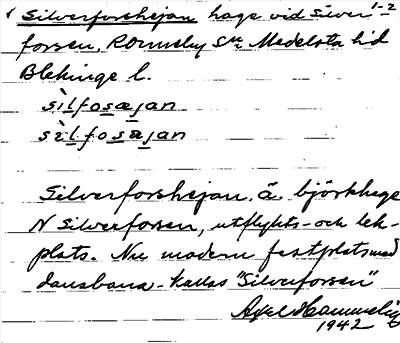 Silverforshejan hage vid Silver 1-2
forsen, Ronneby sn Medelsta hd
Blekinge l.
sìlfosæjan
sìlfosæjan
Silverforshejan, ä. björkhage
N Silverforsen, utflykts- och lek-
plats. Nu modern festplats med
dansbana - kallas "Silverforsen"
Axel Hammelig
1942